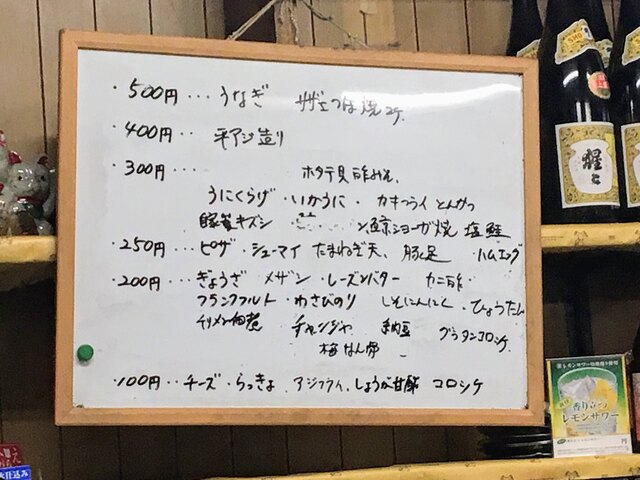 ・500円… うなぎ サザエつぼ焼 2ケ.
・400円‥ 平アジ造り
・300円… ホタテ貝酢みそ、
うにくらげ・いかうに・カキフライ とんかつ
ン鯨ショーガ焼 塩鮭
・250円‥ピザ・シューマイ たまねぎ天、豚足 ハムエッグ
・200円… ぎょうざ メザシ・レーズンバター カニ酢
フランクフルト・わさびのり しそにんにく・ひょうたん
チリメン佃煮 チャンジャ 納豆 グラタンコロッケ.
梅なんばん
・100円‥チーズ・らっきょ アジフライ、しょうが甘酢 コロッケ
猩々
香り立つ
レモンサワー
円